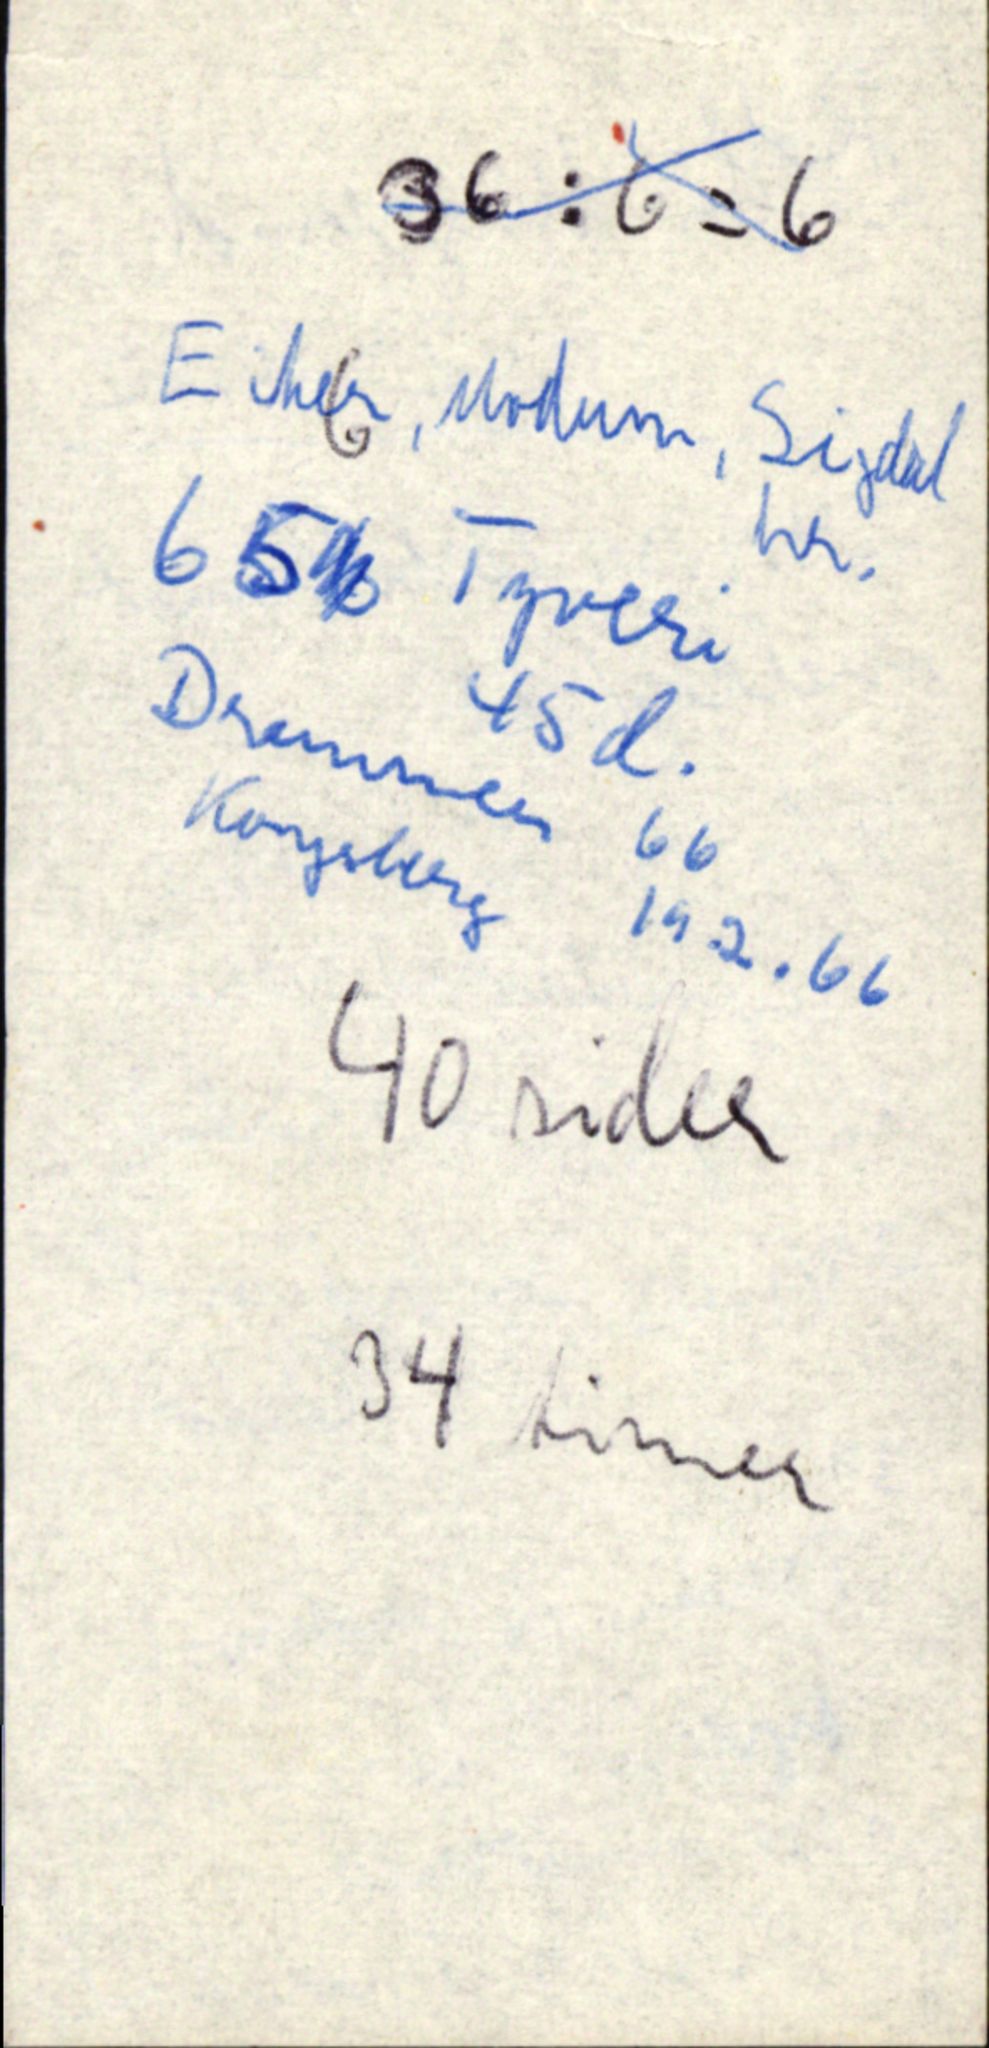 36 : 6 = 6
Eiker, Modum, Sigdal
6
hr.
65 Tyveri
45 d.
Drammen 66
Kongsberg 19.2.66
40 sider
34 timer